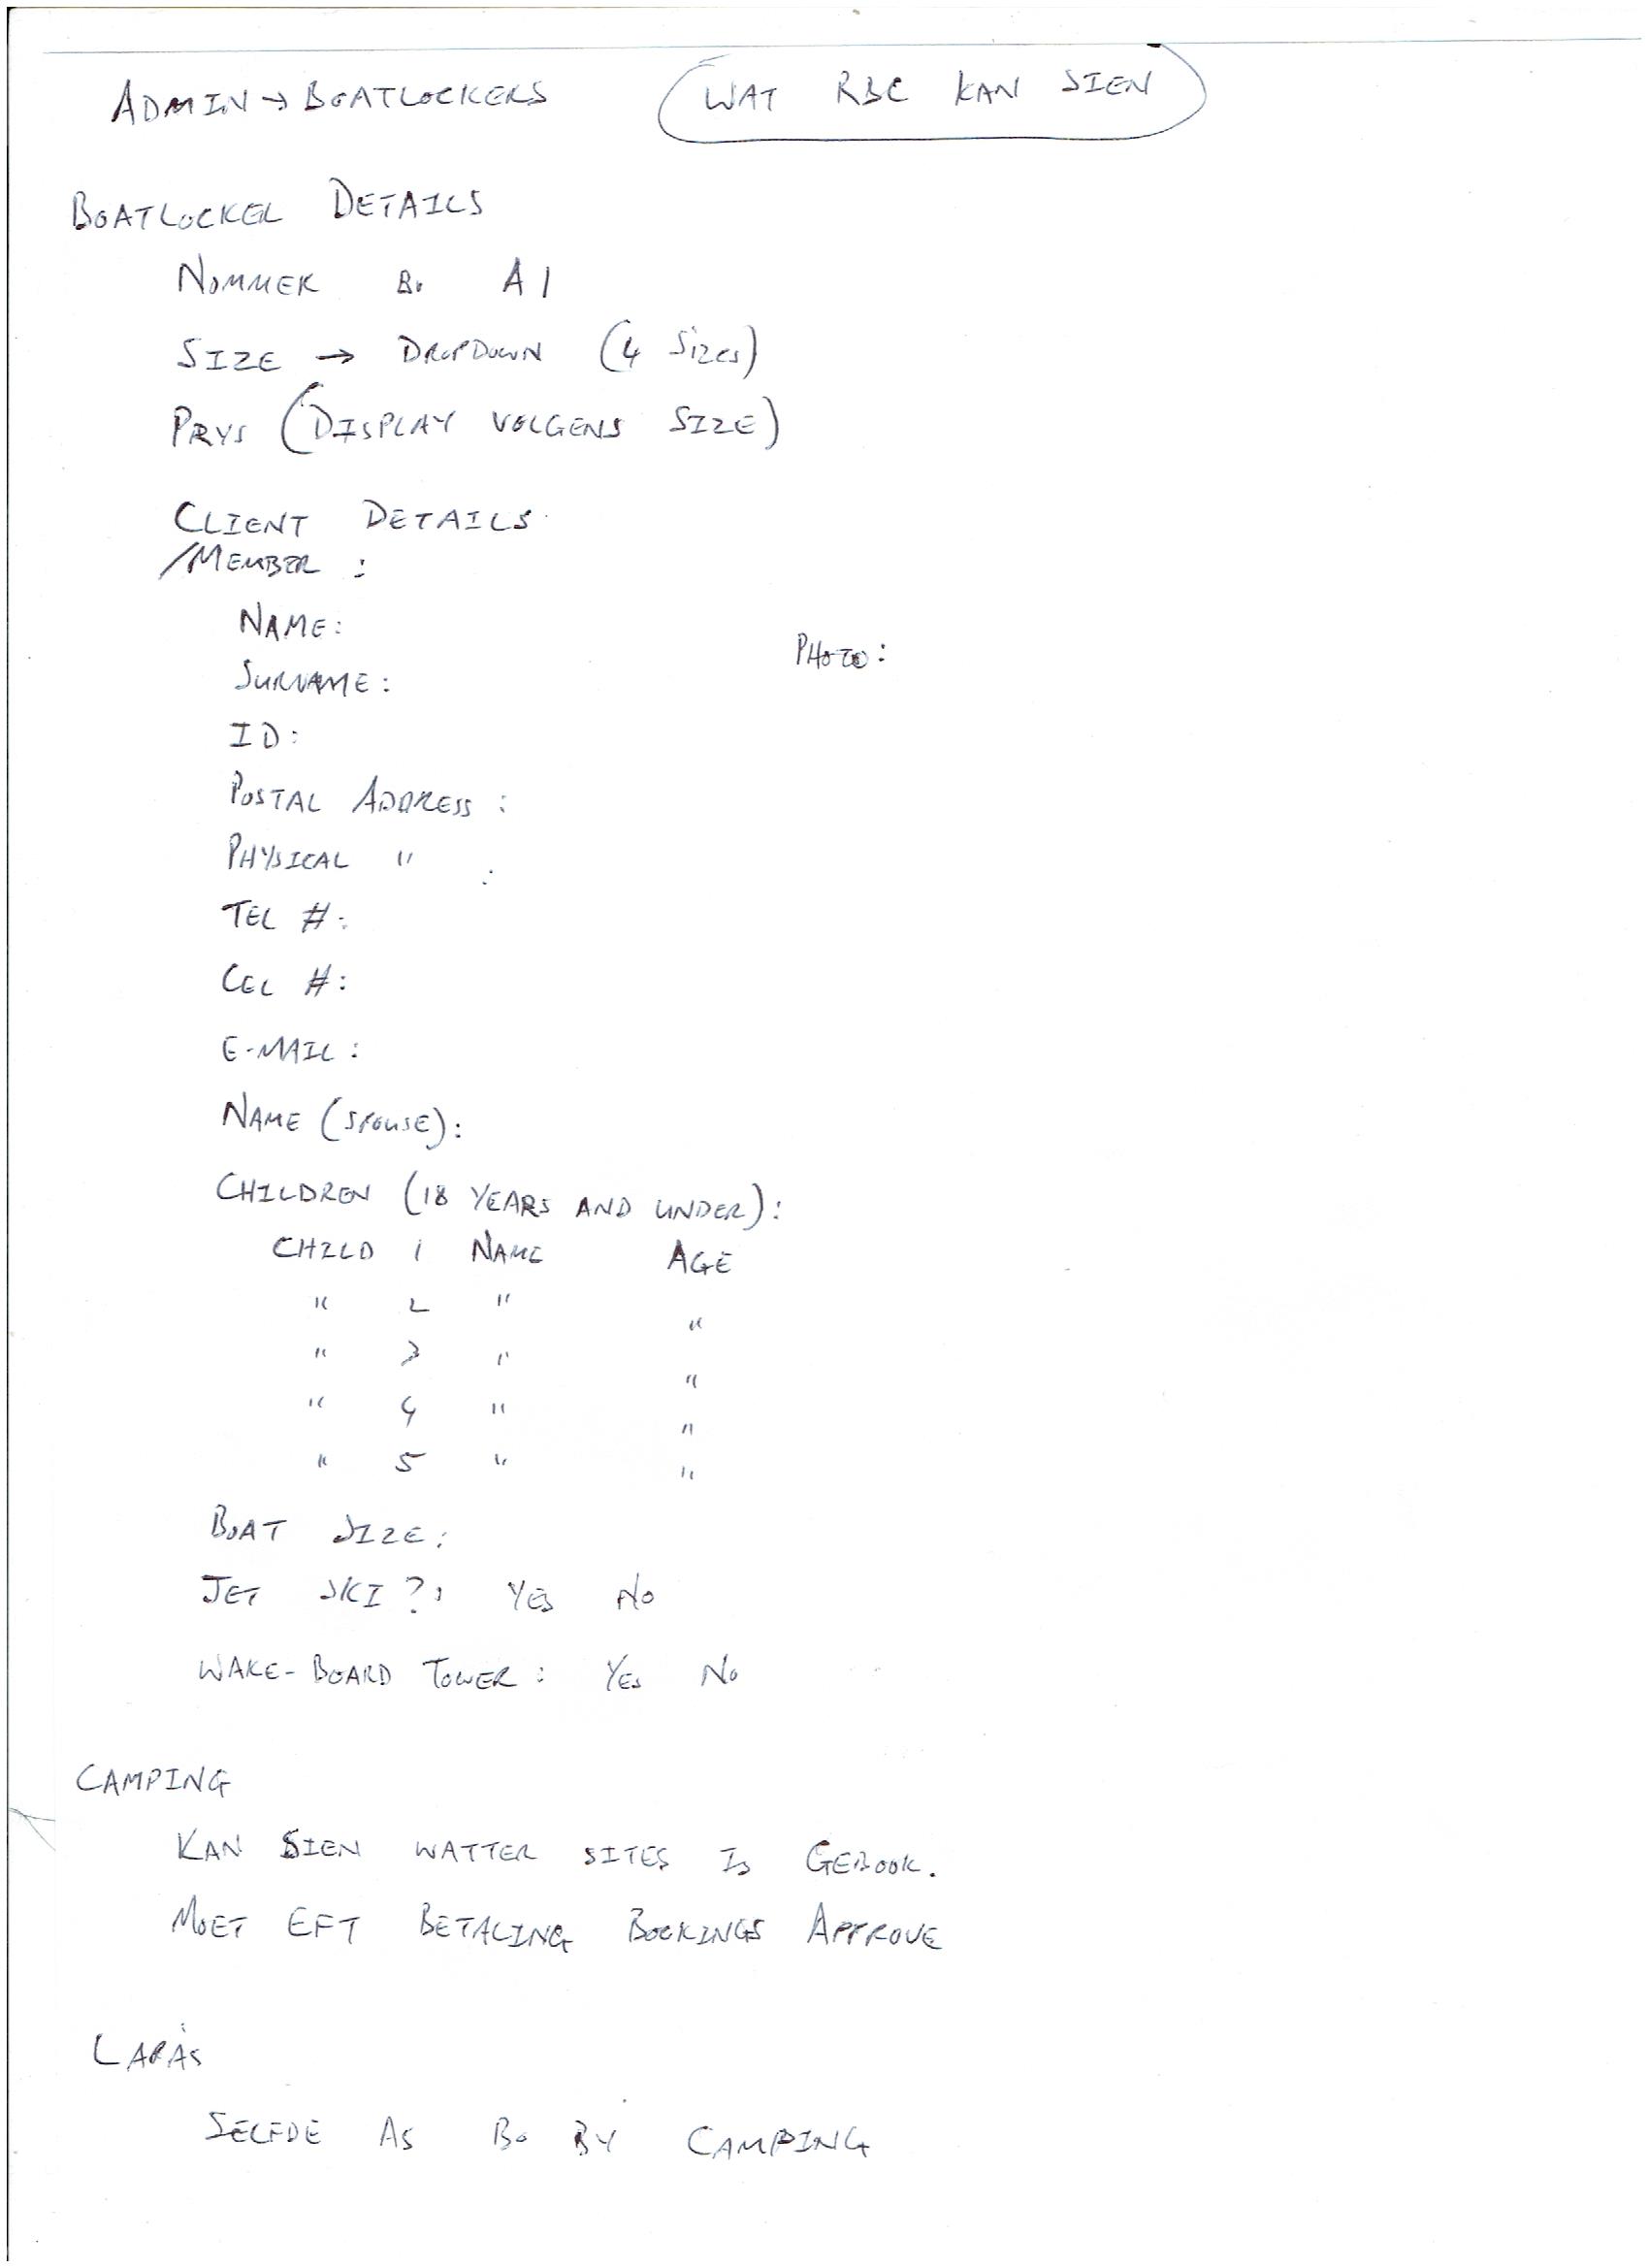 ADMIN → BOATLOCKERS WAT RBC KAN SIEN
BOATLOCKER DETAILS
NOMMER BO A1
SIZE → DROPDOWN (4 Sizes)
PRYS (DISPLAY VOLGENS SIZE)
CLIENT DETAILS
/MEMBER :
NAME:
PHOTO:
SURNAME:
ID:
POSTAL ADDRESS :
PHYSICAL " :
TEL #:
CEL #:
E-MAIL:
NAME (SPOUSE):
CHILDREN (18 YEARS AND UNDER):
CHILD 1 NAME AGE
" 2 " "
" 3 " "
" 4 " "
" 5 " "
BOAT SIZE:
JET SKI?: YES NO
WAKE-BOARD TOWER: YES NO
CAMPING
KAN SIEN WATTER SITES IS GEBOOK.
MOET EFT BETALING BOOKINGS APPROVE
LAPAS
SELFDE AS BO BY CAMPING